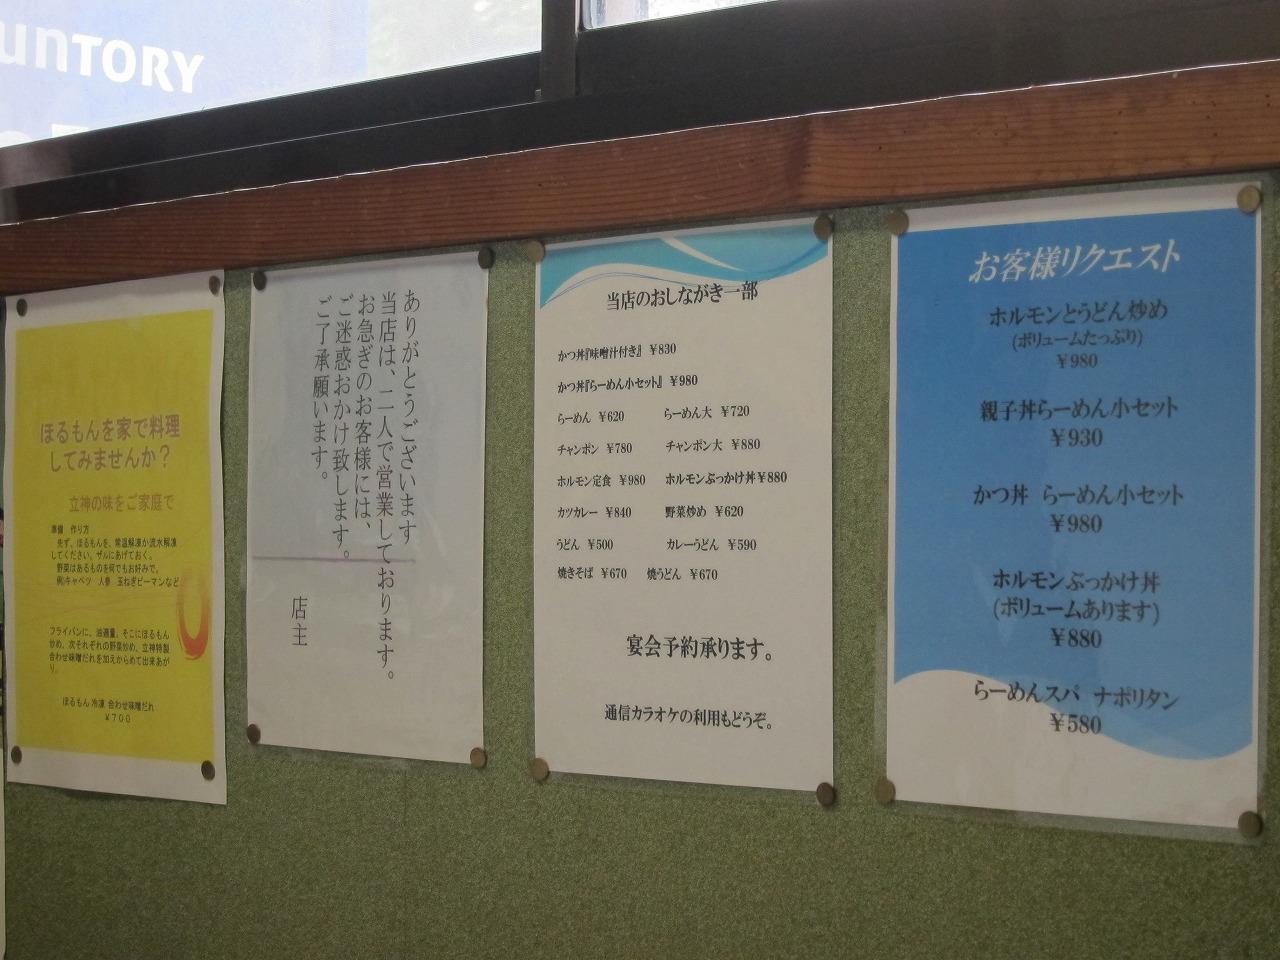 SUNTORY
ほるもんを家で料理
してみませんか？
立神の味をご家庭で
準備　作り方
先ず、ほるもんを、常温解凍か流水解凍
してください。ザルにあげておく。
野菜はあるものを何でもお好みで。
例)キャベツ　人参　玉ねぎピーマンなど
フライパンに、油適量、そこにほるもん
炒め、次それぞれの野菜炒め、立神特製
合わせ味噌だれを加えからめて出来あが
り。
ほるもん 冷凍 合わせ味噌だれ
￥７００
ありがとうございます
当店は、二人で営業しております。
お急ぎのお客様には、
ご迷惑おかけ致します。
ご了承願います。
店主
当店のおしながき一部
かつ丼『味噌汁付き』 ￥830
かつ丼『らーめん小セット』 ￥980
らーめん ￥620　らーめん大 ￥720
チャンポン ￥780　チャンポン大 ￥880
ホルモン定食 ￥980　ホルモンぶっかけ丼￥880
カツカレー ￥840　野菜炒め ￥620
うどん ￥500　カレーうどん ￥590
焼きそば ￥670　焼うどん ￥670
宴会予約承ります。
通信カラオケの利用もどうぞ。
お客様リクエスト
ホルモンとうどん炒め
(ボリュームたっぷり)
￥980
親子丼らーめん小セット
￥930
かつ丼 らーめん小セット
￥980
ホルモンぶっかけ丼
(ボリュームあります)
￥880
らーめんスパ ナポリタン
￥580